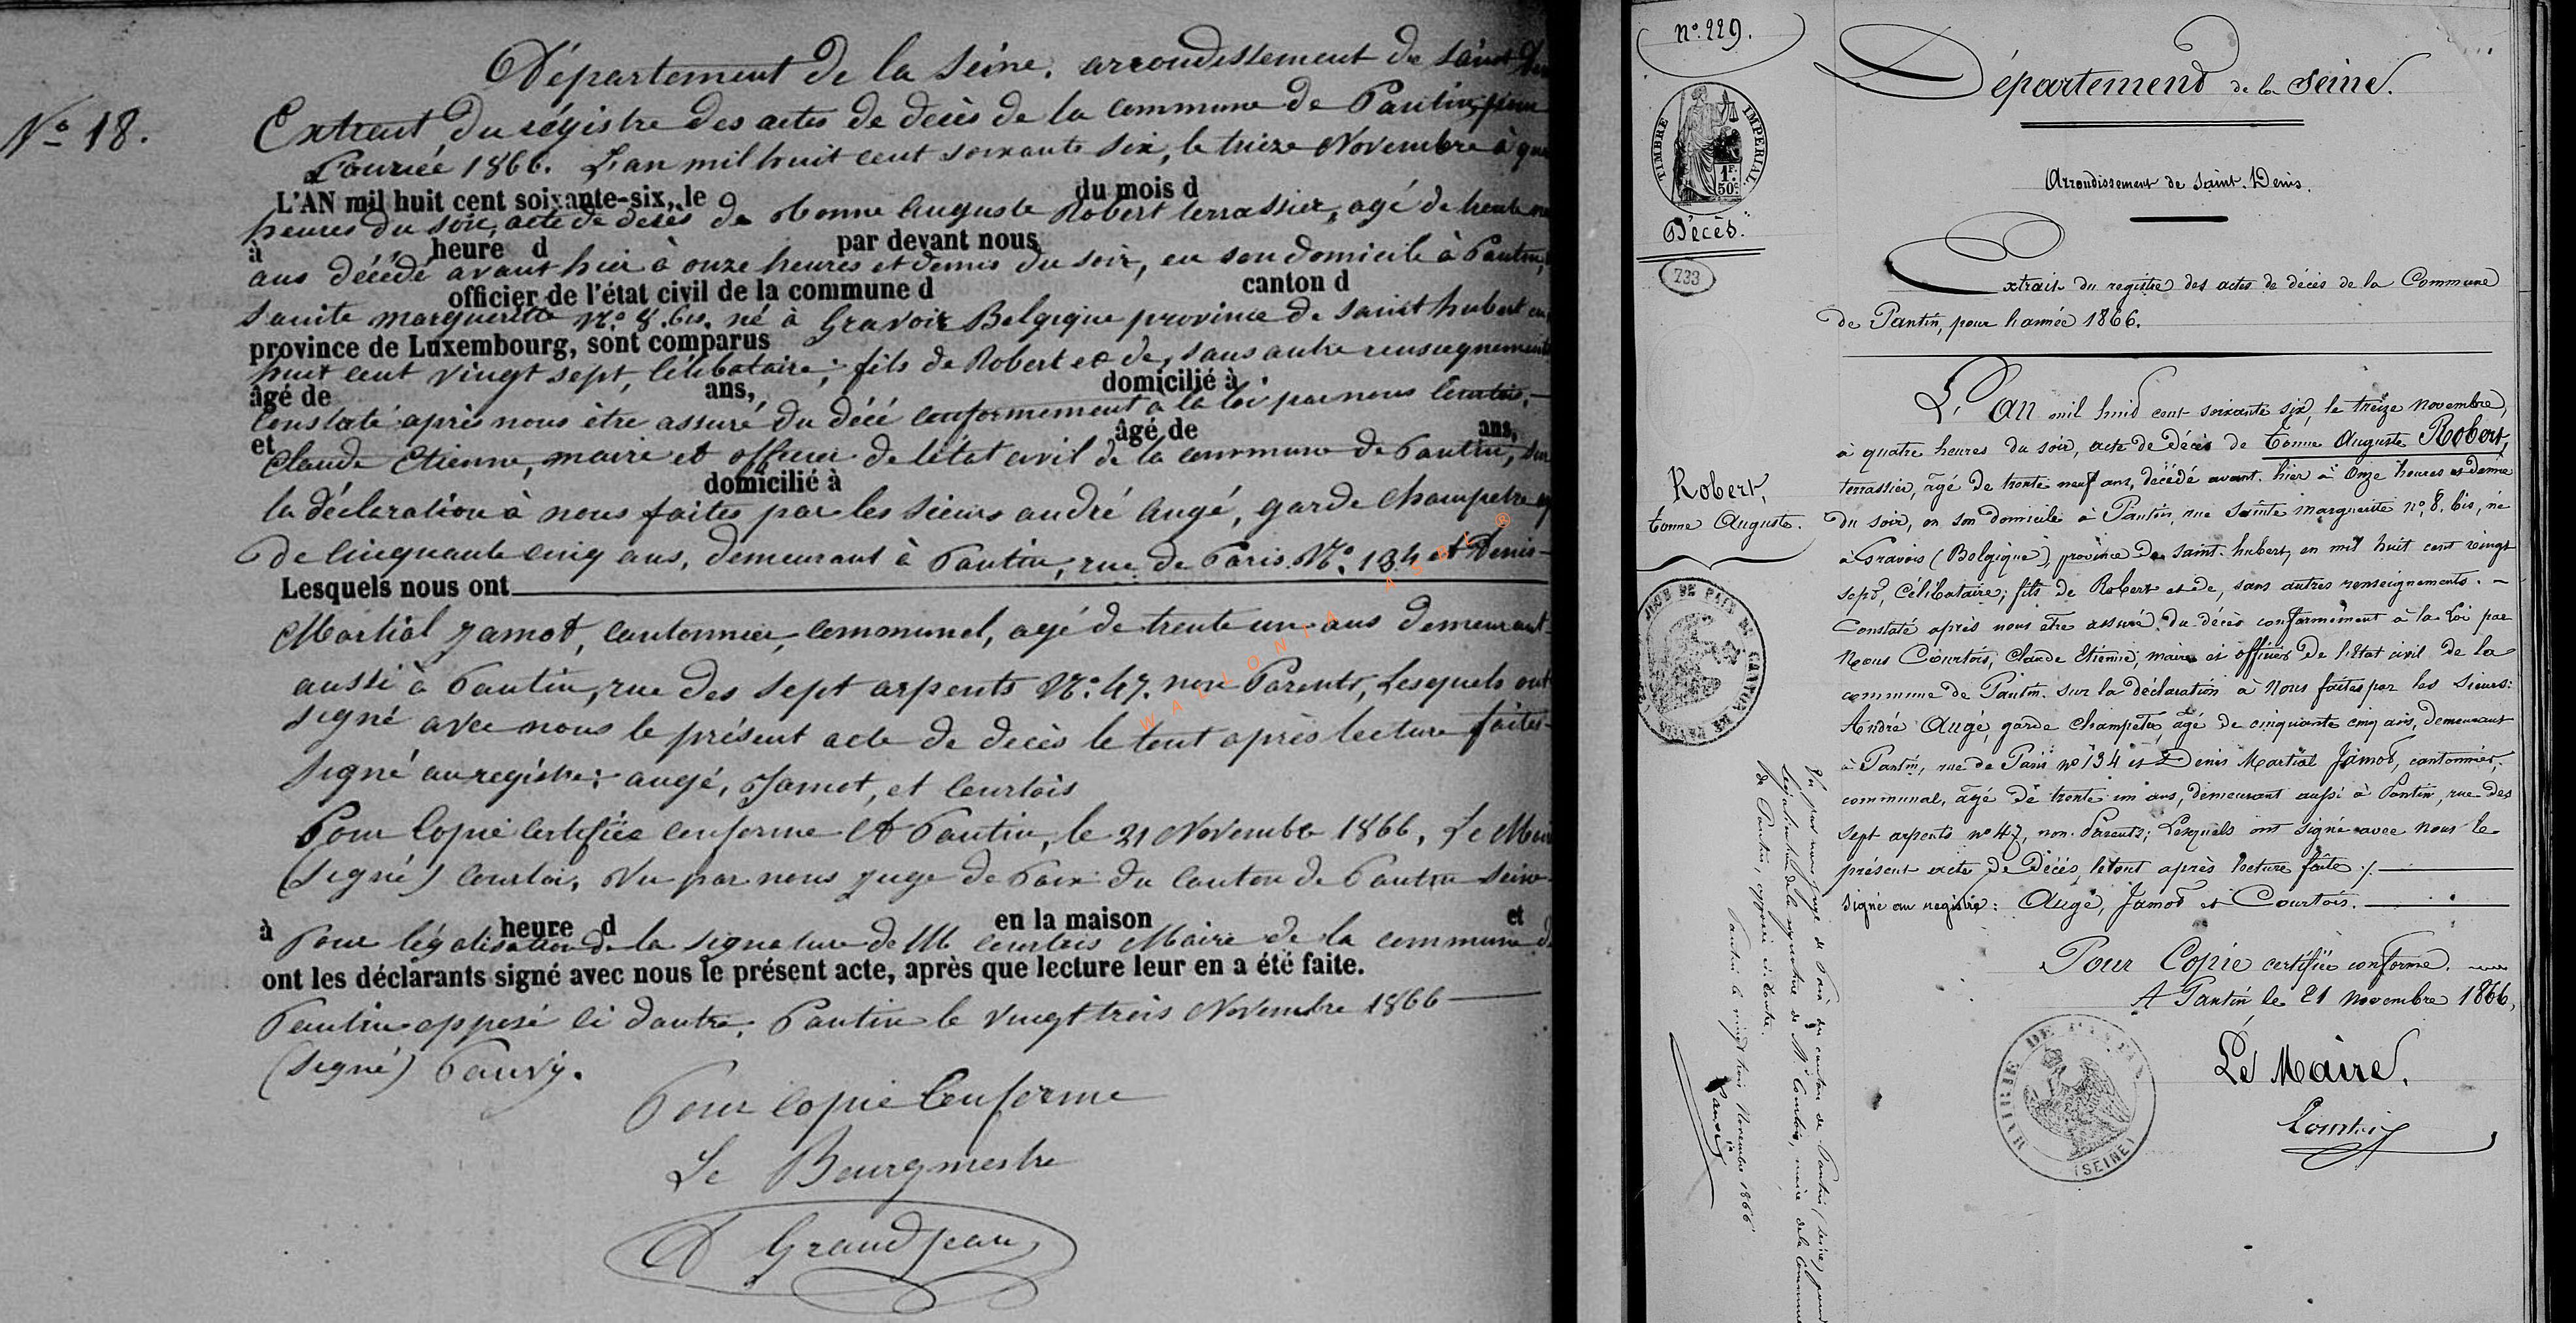 Nº 18.
Département de la Seine. arrondissement de Saint
Extrait du régistre des actes de décès de la commune de Pantin, pour
L'année 1866. L'an mil huit cent soixante six, le treize Novembre à
L'AN mil huit cent soixante-six, le du mois d
heures du soir, acte de décès de Tonne Auguste Robert terrassier, agé de trente
à heure d par devant nous
ans décédé avant hier à onze heures et demie du soir, en son domicile à Pantin,
officier de l'état civil de la commune d canton d
Sainte marguerite Nº 8. bis. né à Gravoir Belgique province de Saint hubert en
province de Luxembourg, sont comparus
huit cent vingt sept, Célibataire; fils de Robert et de, sans autre renseignements
âgé de ans, domicilié à
Constaté après nous être assuré du décé conformement à la loi par nous Courtois,
et âgé de ans,
Claude Etienne, maire et officier de l'état civil de la commune de Pantin, sur
domicilié à
la déclaration à nous faites par les Sieurs andré Augé, garde champetre
de Cinquante cinq ans, demeurant à Pantin, rue de Paris Nº. 134 et Denis
Lesquels nous ont
Martial Jamot, Cantonnier, Communal, agé de trente un ans demeurant
aussi à Pantin, rue des Sept arpents Nº. 47. non Parents, Lesquels ont
signé avec nous le présent acte de decès le tout après lecture faites
Signé au registre: augé, Jamot, et Courtois
Pour Copie Certifiée Conforme A Pantin, le 21 Novembre 1866, Le
(Signé) Courtois, Vu par nous Juge de Paix du Canton de Pantin Seine
à heure d en la maison et
Pour légalisation de la signature de M Courtois Maire de la commune de
ont les déclarants signé avec nous le présent acte, après que lecture leur en a été faite.
Pantin apposé ci dautre, Pantin le vingt trois Novembre 1866
(Signé)
Pour Copie Conforme
Le Bourgmestre
A Grandjean
WALLONIA ASBL ®
nº 229.
TIMBRE IMPERIAL
1F.
50c
Décès.
733
Robert,
tonne Auguste.
JUGE DE PAIX DU CANTON DE PANTIN
Département de la Seine.
Arrondissement de Saint-Denis.
Extrait du registre des actes de décès de la Commune
de Pantin, pour l'année 1866.
L'An mil huit cent soixante six, le treize novembre,
à quatre heures du soir, acte de décès de tonne Auguste Robert,
terrassier, âgé de trente neuf ans, décédé avant-hier à onze heures et demie
du soir, en son domicile à Pantin, rue Sainte marguerite nº 8. bis, né
à Gravois (Belgique), province de saint-hubert, en mil huit cent vingt
sept, Célibataire; fils de Robert et de, sans autres renseignements.
Constaté après nous être assuré du décès conformément à la Loi par
Nous Courtois, Claude Etienne, maire et officier de l'Etat civil de la
commune de Pantin. sur la déclaration à Nous faites par les Sieurs:
André Augé, garde champêtre âgé de cinquante cinq ans, demeurant
à Pantin, rue de Paris nº 134 et Denis Martial Jamot, cantonnier,
communal, âgé de trente un ans, demeurant aussi à Pantin, rue des
sept arpents nº 47, non-Parents; Lesquels ont signé avec Nous le
présent acte de Décès, le tout après lecture faite %.
Signé au registre: Augé, Jamot et Courtois.
Pour Copie certifiée conforme.
A Pantin le 21 novembre 1866,
Le Maire.
Courtois
MAIRIE DE PANTIN
(SEINE)
Vu par nous Juge de Paix du canton de Pantin (Seine) pour
Légalisation de la signature de Mr Courtois, maire de la Commune
de Pantin, apposée ci-contre.
Pantin le vingt trois Novembre 1866